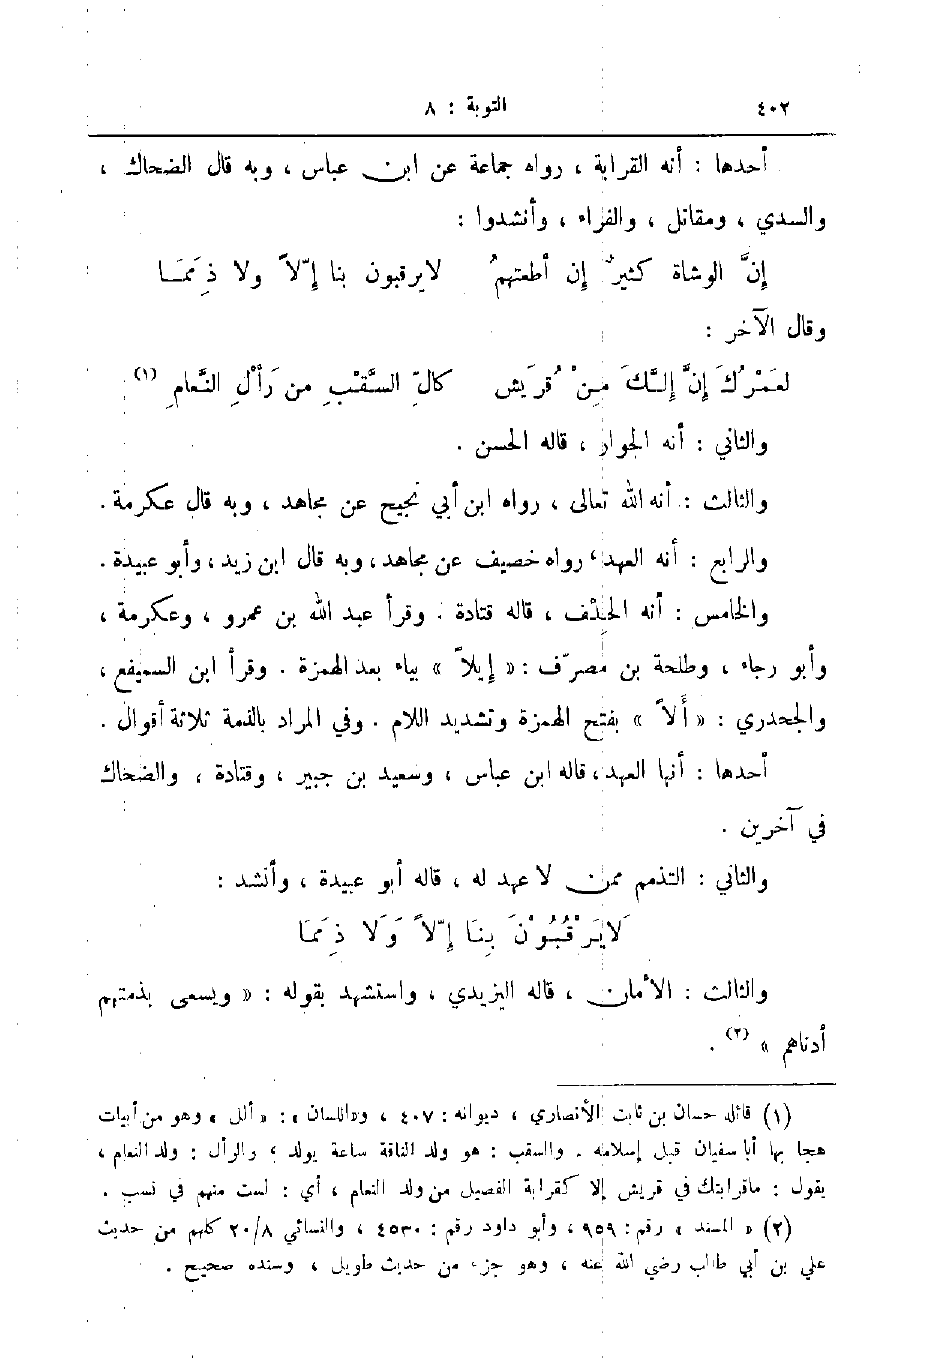 ٤٠٢ التوبة : ٨
أحدها : أنه القرابة ، رواه جماعة عن ابن عباس ، وبه قال الضحاك ،
والسدي ، ومقاتل ، والفراء ، وأنشدوا :
إنَّ الوشاة كثيرٌ إن أطعتهمُ لايرقبون بنا إلّاً ولا ذِمَمَا
وقال الآخر :
لعَمْرُكَ إنَّ إلَّكَ مِنْ قُرَيش كالِّ السَّقْبِ من رَأْلِ النَّعام (١)
والثاني : أنه الجوار ، قاله الحسن .
والثالث : أنه الله تعالى ، رواه ابن أبي نجيح عن مجاهد ، وبه قال عكرمة .
والرابع : أنه العهد ، رواه خصيف عن مجاهد ، وبه قال ابن زيد ، وأبو عبيدة .
والخامس : أنه الحِلْف ، قاله قتادة . وقرأ عبد الله بن عمرو ، وعكرمة ،
وأبو رجاء ، وطلحة بن مصرّف : « إيلاً » بياء بعد الهمزة . وقرأ ابن السميفع ،
والجحدري : « أَلاً » بفتح الهمزة وتشديد اللام . وفي المراد بالذمة ثلاثة أقوال .
أحدها : أنها العهد ، قاله ابن عباس ، وسعيد بن جبير ، وقتادة ، والضحاك
في آخرين .
والثاني : التذمم ممن لا عهد له ، قاله أبو عبيدة ، وأنشد :
لَايَرْقُبُوْنَ بِنَا إلّاً وَلَا ذِمَمَا
والثالث : الأمان ، قاله اليزيدي ، واستشهد بقوله : « ويسعى بذمتهم
أدناهم » (٢) .
(١) قائله حسان بن ثابت الأنصاري ، ديوانه : ٤٠٧ ، و«اللسان» : « ألل » وهو من أبيات
هجا بها أبا سفيان قبل إسلامه . والسقب : هو ولد الناقة ساعة يولد ؛ والرأل : ولد النعام ،
يقول : ماقرابتك في قريش إلا كقرابة الفصيل من ولد النعام ، أي : لست منهم في نسب .
(٢) « المسند » رقم : ٩٥٩ ، وأبو داود رقم : ٤٥٣٠ ، والنسائي ٢٠/٨ كلهم من حديث
علي بن أبي طالب رضي الله عنه ، وهو جزء من حديث طويل ، وسنده صحيح .